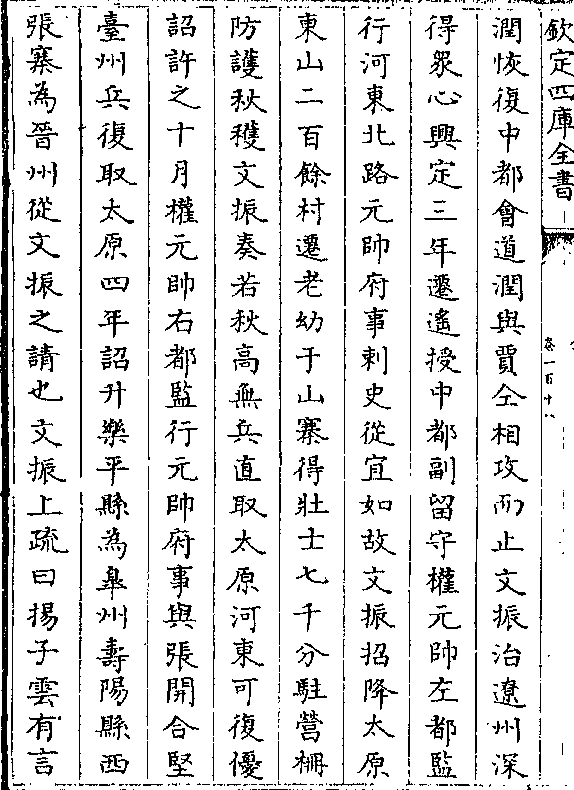 欽定四庫全書
卷一百十八
潤恢復中都會道潤與賈仝相攻而止文振治遼州深
得衆心興定三年遷遙授中都副留守權元帥左都監
行河東北路元帥府事刺史從宜如故文振招降太原
東山二百餘村遷老幼于山寨得壯士七千分駐營栅
防護秋穫文振奏若秋高無兵直取太原河東可復優
詔許之十月權元帥右都監行元帥府事與張開合堅
臺州兵復取太原四年詔升樂平縣為臯州壽陽縣西
張寨為晉州從文振之請也文振上疏曰揚子雲有言